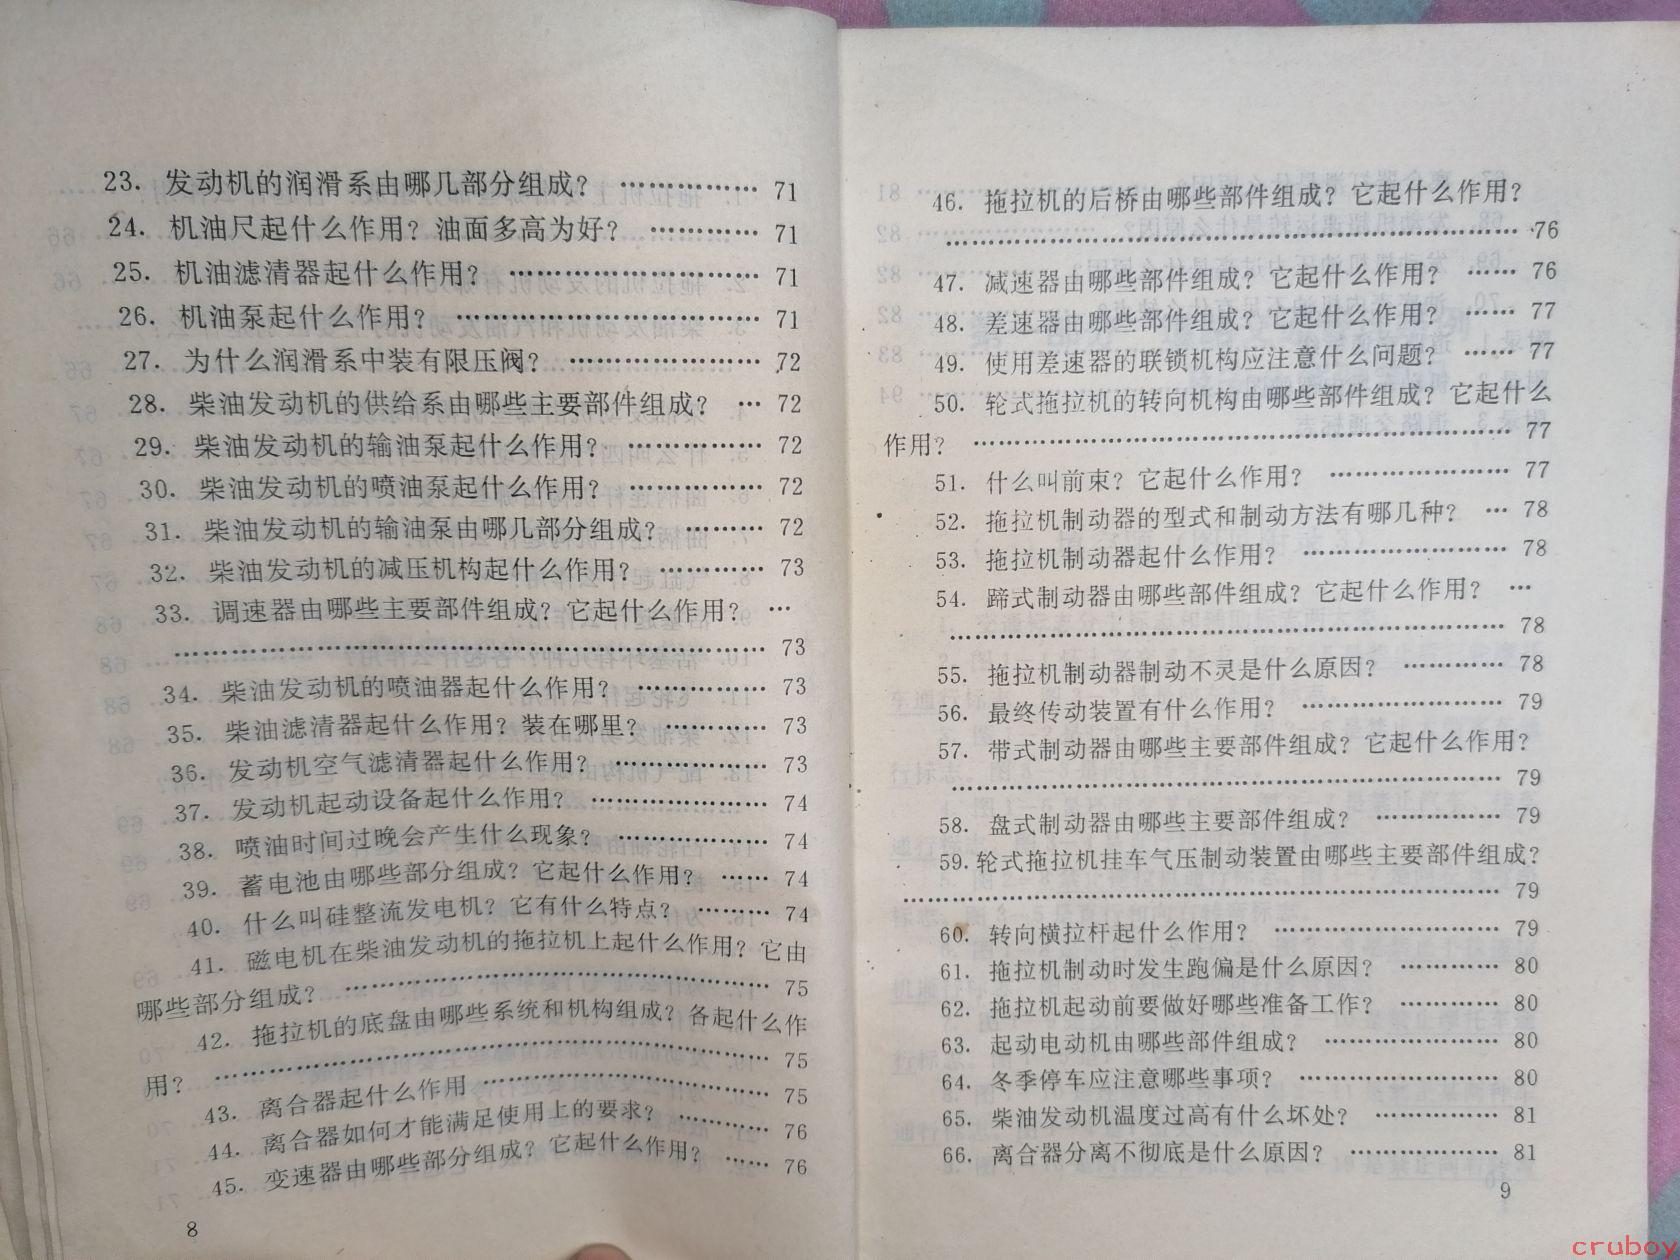 23. 发动机的润滑系由哪几部分组成？ …………… 71
24. 机油尺起什么作用？油面多高为好？ ………… 71
25. 机油滤清器起什么作用？ ……………………… 71
26. 机油泵起什么作用？ …………………………… 71
27. 为什么润滑系中装有限压阀？ ………………… 72
28. 柴油发动机的供给系由哪些主要部件组成？ … 72
29. 柴油发动机的输油泵起什么作用？ …………… 72
30. 柴油发动机的喷油泵起什么作用？ …………… 72
31. 柴油发动机的输油泵由哪几部分组成？ ……… 72
32. 柴油发动机的减压机构起什么作用？ ………… 73
33. 调速器由哪些主要部件组成？它起什么作用？ …
………………………………………………………… 73
34. 柴油发动机的喷油器起什么作用？ …………… 73
35. 柴油滤清器起什么作用？装在哪里？ ………… 73
36. 发动机空气滤清器起什么作用？ ……………… 73
37. 发动机起动设备起什么作用？ ………………… 74
38. 喷油时间过晚会产生什么现象？ ……………… 74
39. 蓄电池由哪些部分组成？它起什么作用？ …… 74
40. 什么叫硅整流发电机？它有什么特点？ ……… 74
41. 磁电机在柴油发动机的拖拉机上起什么作用？它由
哪些部分组成？ ……………………………………… 75
42. 拖拉机的底盘由哪些系统和机构组成？各起什么作
用？ …………………………………………………… 75
43. 离合器起什么作用 …………………………… 75
44. 离合器如何才能满足使用上的要求？ ………… 76
45. 变速器由哪些部分组成？它起什么作用？ …… 76
8
46. 拖拉机的后桥由哪些部件组成？它起什么作用？
………………………………………………………… 76
47. 减速器由哪些部件组成？它起什么作用？ …… 76
48. 差速器由哪些部件组成？它起什么作用？ …… 77
49. 使用差速器的联锁机构应注意什么问题？ …… 77
50. 轮式拖拉机的转向机构由哪些部件组成？它起什么
作用？ ………………………………………………… 77
51. 什么叫前束？它起什么作用？ ………………… 77
52. 拖拉机制动器的型式和制动方法有哪几种？ … 78
53. 拖拉机制动器起什么作用？ …………………… 78
54. 蹄式制动器由哪些部件组成？它起什么作用？ …
………………………………………………………… 78
55. 拖拉机制动器制动不灵是什么原因？ ………… 78
56. 最终传动装置有什么作用？ …………………… 79
57. 带式制动器由哪些主要部件组成？它起什么作用？
………………………………………………………… 79
58. 盘式制动器由哪些主要部件组成？ …………… 79
59. 轮式拖拉机挂车气压制动装置由哪些主要部件组成？
………………………………………………………… 79
60. 转向横拉杆起什么作用？ ……………………… 79
61. 拖拉机制动时发生跑偏是什么原因？ ………… 80
62. 拖拉机起动前要做好哪些准备工作？ ………… 80
63. 起动电动机由哪些部件组成？ ………………… 80
64. 冬季停车应注意哪些事项？ …………………… 80
65. 柴油发动机温度过高有什么坏处？ …………… 81
66. 离合器分离不彻底是什么原因？ ……………… 81
9
cruboy